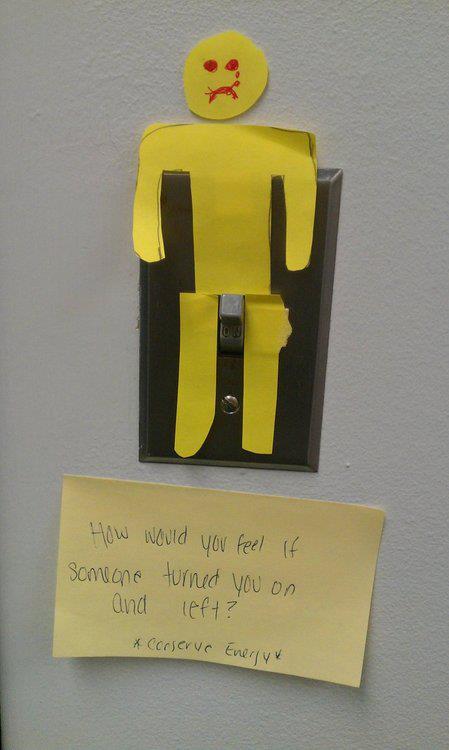 ON
How would you feel if
someone turned you on
and left?
*conserve Energy*